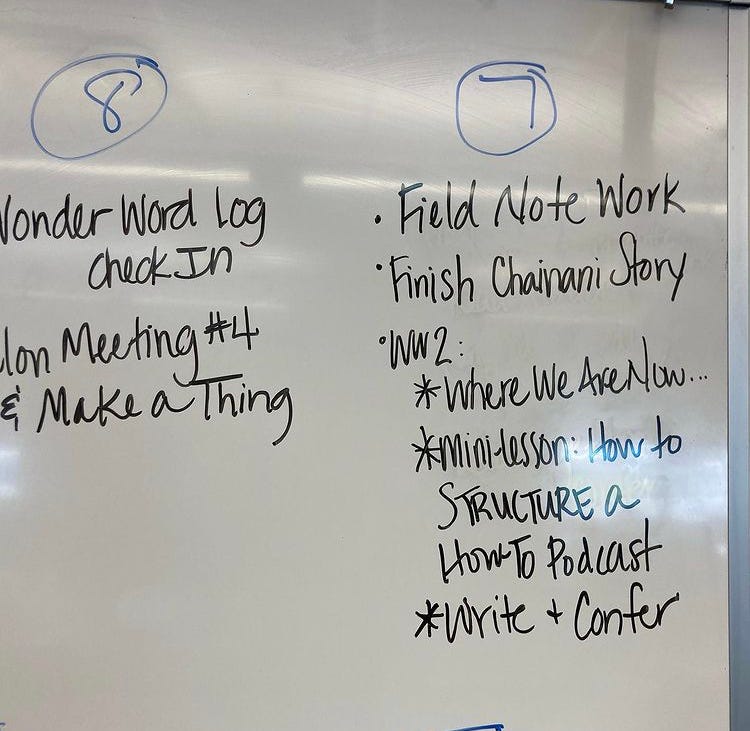 8
Wonder Word Log
Check In
lon Meeting #4
& Make a Thing
7
• Field Note Work
• Finish Chainani Story
• WW2:
*Where We Are Now...
*Mini-lesson: How to
STRUCTURE a
How-To Podcast
*Write + Confer